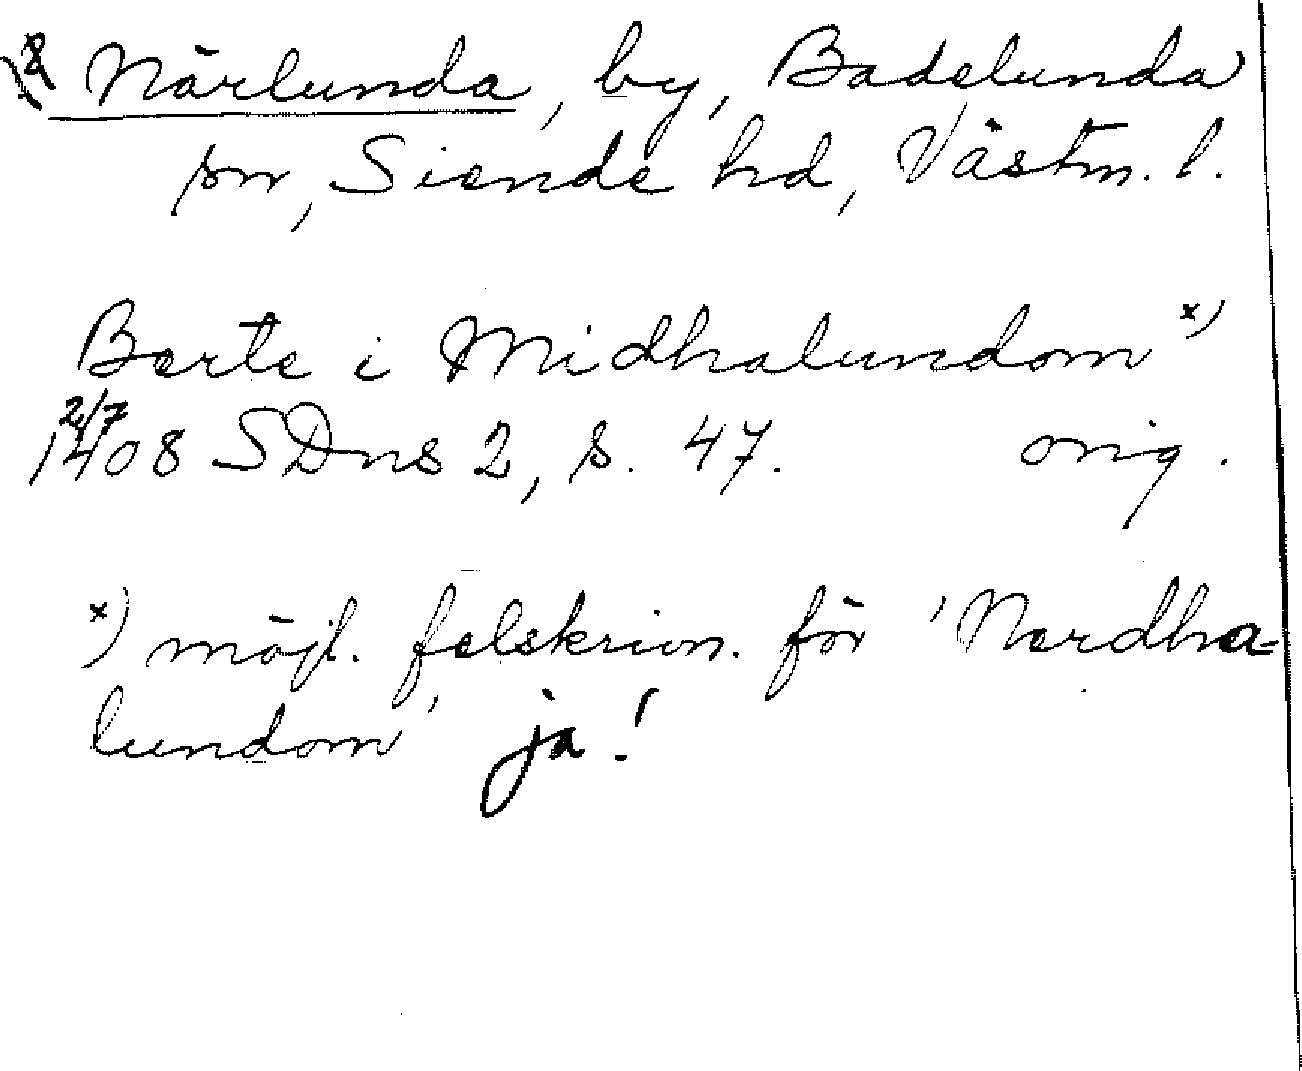 Närlunda, by, Badelunda
sn, Siende hd, Västm. l.
Berte i Midhalundom x)
2/7
1408 SDns 2, s. 47. orig.
x) möjl. felskrivn. för 'Nerdha-
lundom' ja!